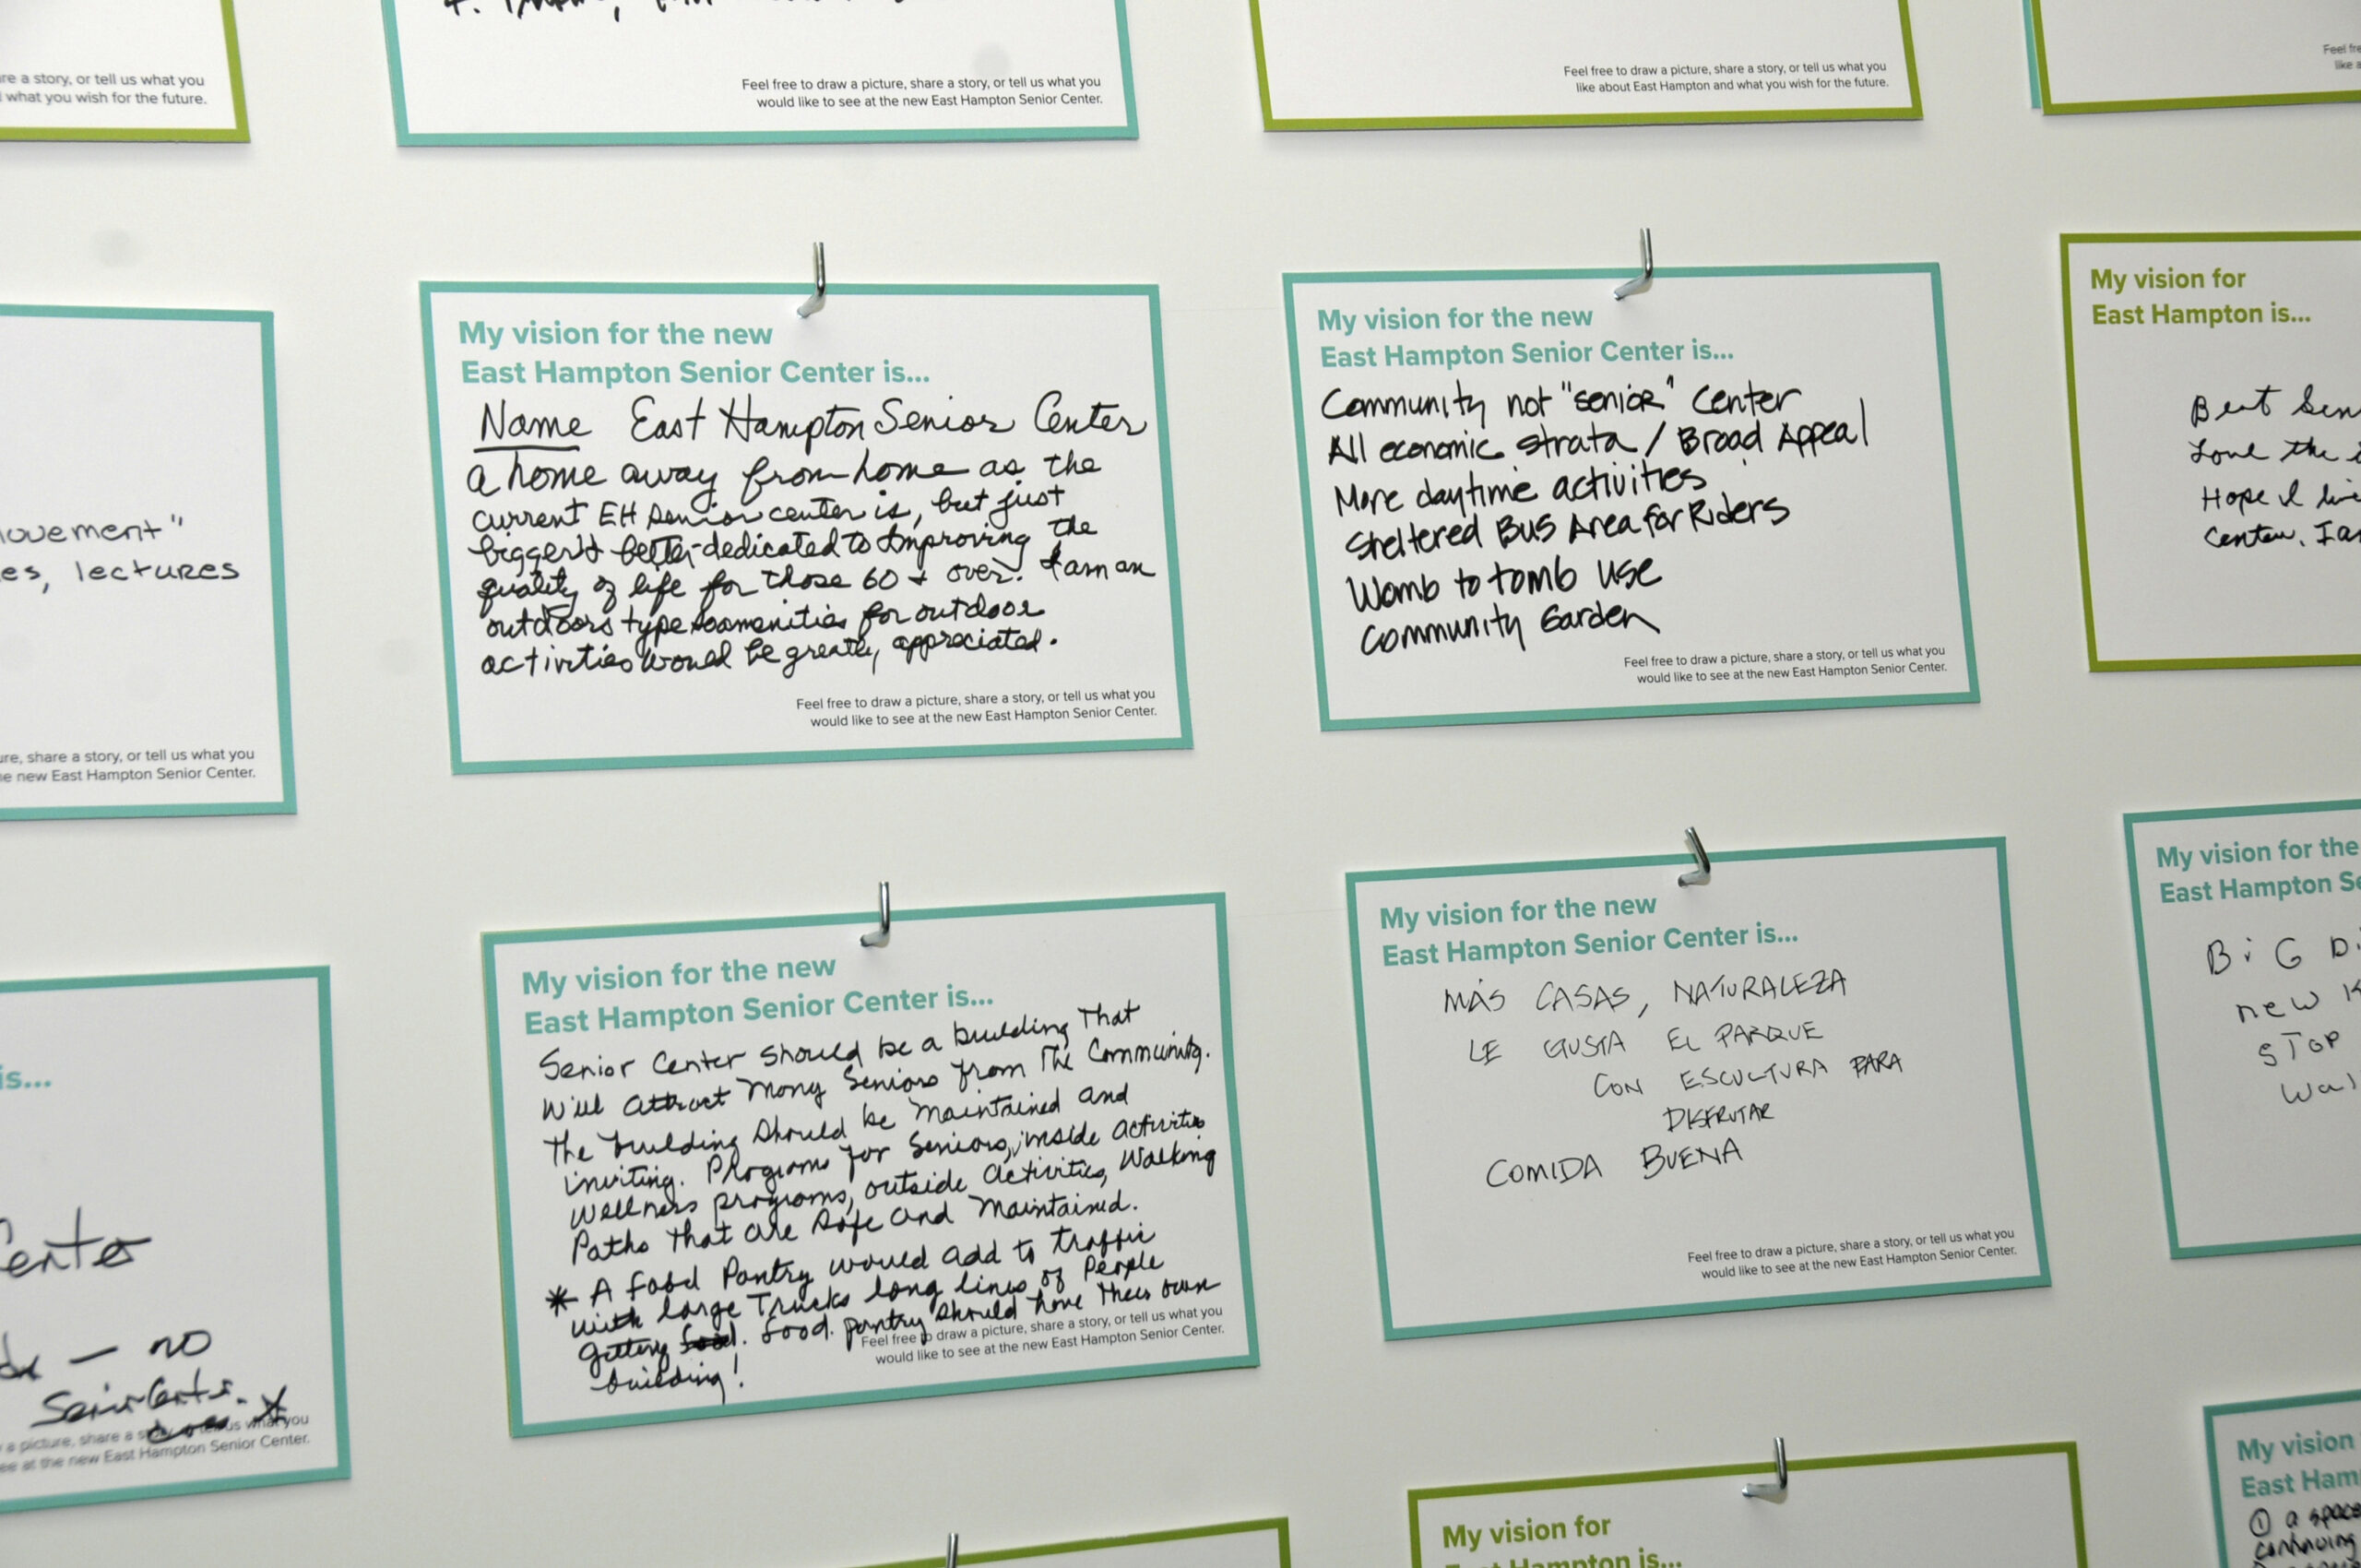 re a story, or tell us what you
what you wish for the future.
Feel free to draw a picture, share a story, or tell us what you
would like to see at the new East Hampton Senior Center.
Feel free to draw a picture, share a story, or tell us what you
like about East Hampton and what you wish for the future.
Feel fre
like a
ovement"
es, lectures
ure, share a story, or tell us what you
he new East Hampton Senior Center.
My vision for the new
East Hampton Senior Center is...
Name East Hampton Senior Center
a home away from home as the
current EH senior center is, but just
bigger & better-dedicated to improving the
quality of life for those 60 + over. I am an
outdoors type so amenities for outdoor
activities would be greatly appreciated.
Feel free to draw a picture, share a story, or tell us what you
would like to see at the new East Hampton Senior Center.
My vision for the new
East Hampton Senior Center is...
Community not "senior" center
All economic strata / Broad Appeal
More daytime activities
Sheltered Bus Area for Riders
Womb to tomb use
Community Garden
Feel free to draw a picture, share a story, or tell us what you
would like to see at the new East Hampton Senior Center.
My vision for
East Hampton is...
Best Sen
Love the
Hope I liv
Center. I a
is...
Center
— no
Senior Center.
a picture, share a us what you
see at the new East Hampton Senior Center.
My vision for the new
East Hampton Senior Center is...
Senior Center should be a building that
will attract many Seniors from the Community.
The building should be maintained and
inviting. Programs for Seniors, inside activities
wellness programs, outside activities, walking
Paths that are safe and maintained.
* A food Pantry would add to traffic
with large Trucks long lines of People
getting food. food. pantry should have their own
building!
Feel free to draw a picture, share a story, or tell us what you
would like to see at the new East Hampton Senior Center.
My vision for the new
East Hampton Senior Center is...
MÁS CASAS, NATURALEZA
LE GUSTA EL PARQUE
CON ESCULTURA PARA
DISFRUTAR
COMIDA BUENA
Feel free to draw a picture, share a story, or tell us what you
would like to see at the new East Hampton Senior Center.
My vision for the
East Hampton Se
BiG Di
new K
STOP
wal
My vision for
East Hampton is...
My vision
East Ham
① a space